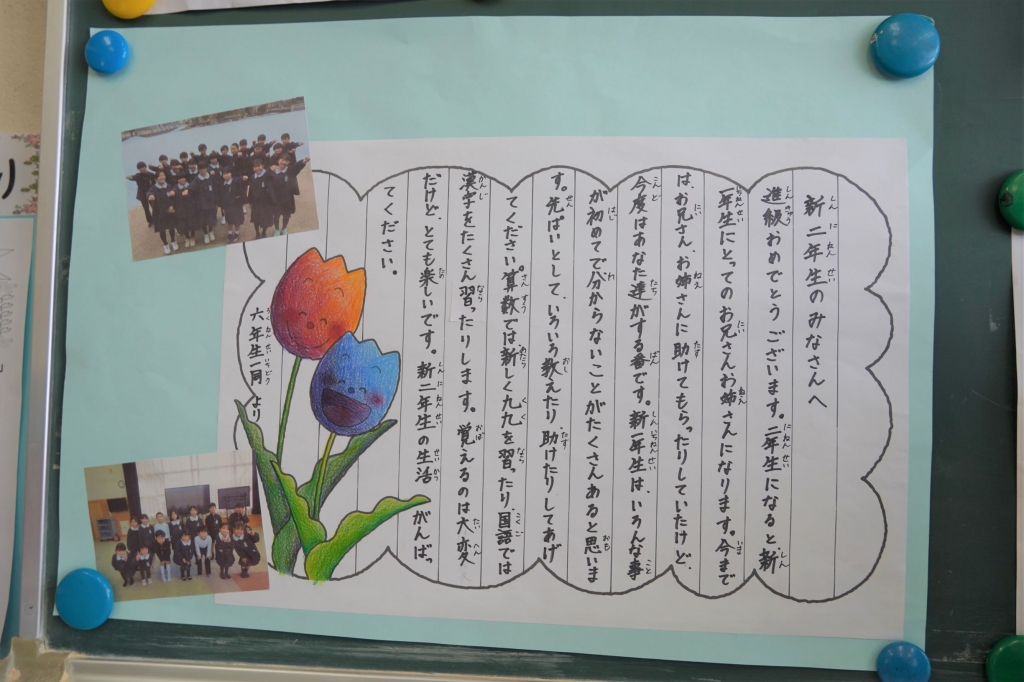 新二年生のみなさんへ
進級おめでとうございます。二年生になると新
一年生にとってのお兄さんお姉さんになります。今まで
は、お兄さん、お姉さんに助けてもらったりしていたけど、
今度はあなた達がする番です。新一年生は、いろんな事
が初めてで分からないことがたくさんあると思いま
す。先ぱいとして、いろいろ教えたり助けたりしてあげ
てください。算数では新しく九九を習ったり、国語では
漢字をたくさん習ったりします。覚えるのは大変
だけど、とても楽しいです。新二年生の生活がんばっ
てください。
六年生一同より
り